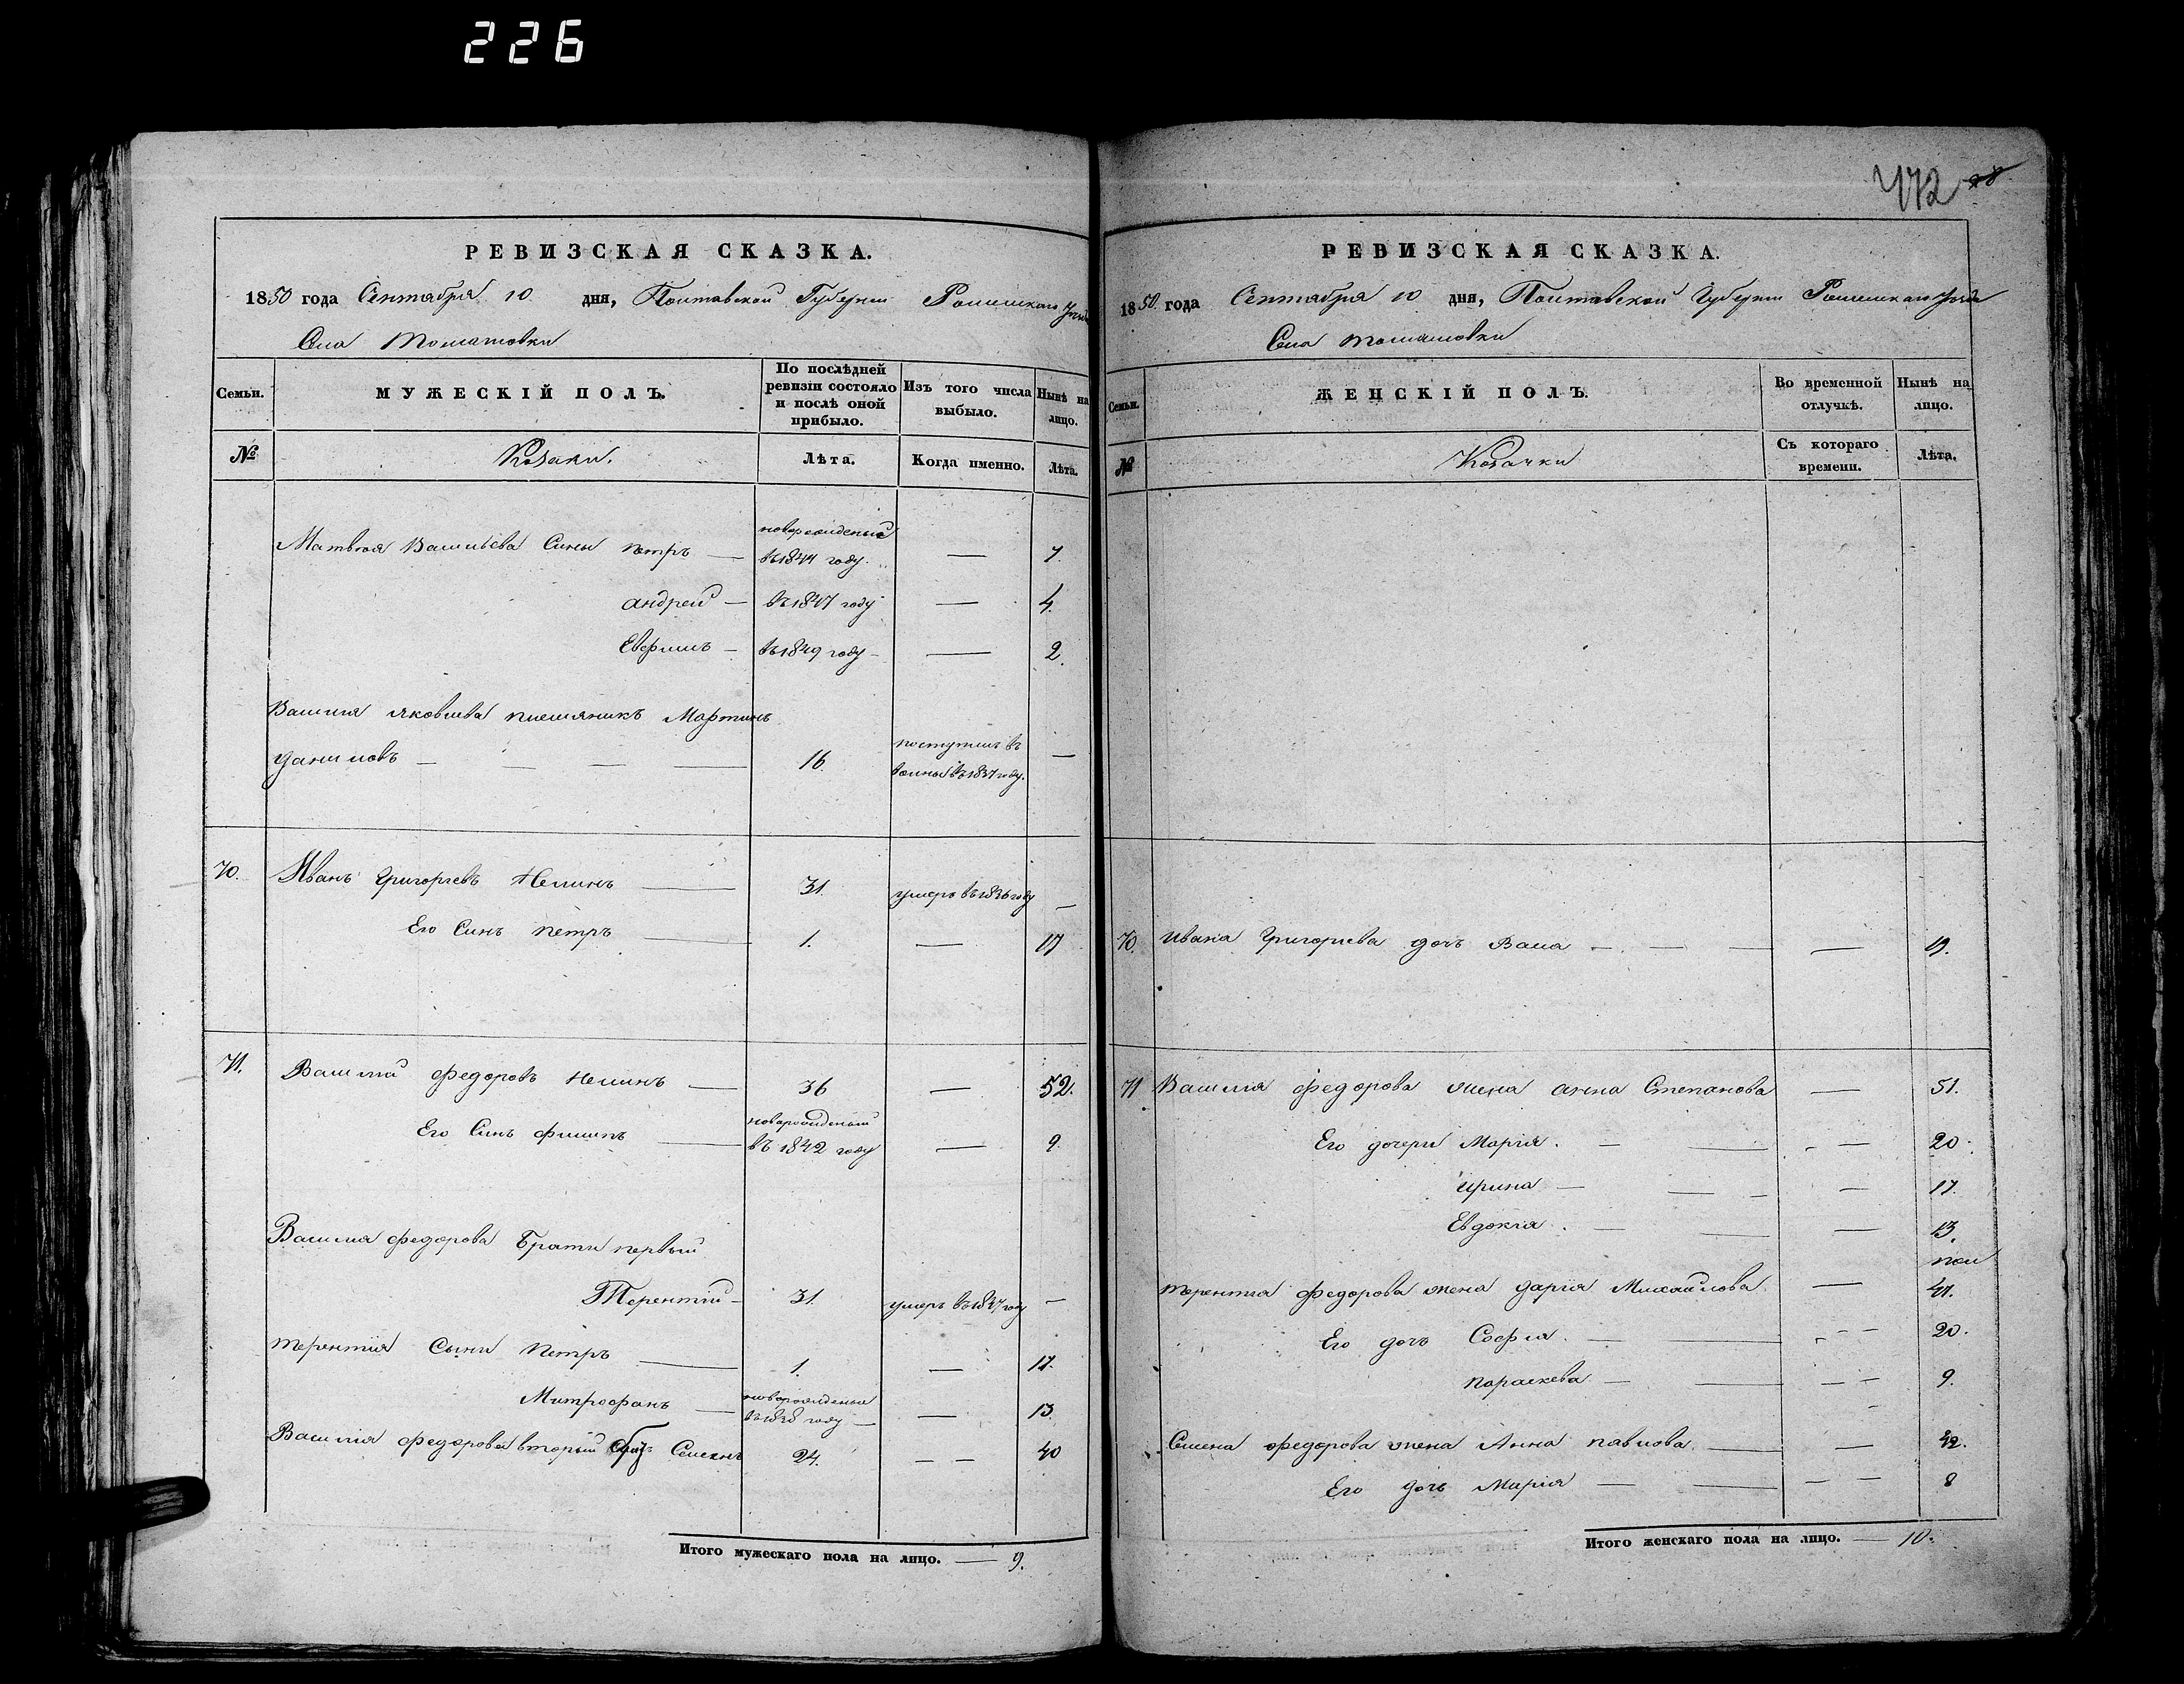 226
472 28
РЕВИЗСКАЯ СКАЗКА.
1850 года Сентября 10 дня, Полтавской Губернии Роменскаго Уезда
Села Томашовки
Семьи. МУЖЕСКІЙ ПОЛЪ. По послѣдней ревизіи состояло и послѣ оной прибыло. Изъ того числа выбыло. Нынѣ на лицо.
№ Козаки. Лѣта. Когда именно. Лѣта.
Матвея Васильева Сыны петръ — новорожденые въ 1844 году — 7.
андрей — въ 1847 году — 4.
Евфимъ — въ 1849 году — 2.
Василия яковлева племяникъ Мартинъ
даниловъ — — — — 16. поступилъ въ 1837 году. —
70. Иванъ Григорьевъ — 31. умеръ въ 1836 году —
Его Синъ петръ — 1. — 17
71. Василий федоровъ — 36 — 52.
Его Синъ филипъ — новорожденый въ 1842 году — 9.
Василия федорова Брати первый
Терентий — 31. умеръ въ 1837 году —
терентия Сыни петръ — 1. — 17.
Митрофанъ — новорожденые въ 1838 году — — 13.
Василия федорова вторый Семенъ 24. — — 40
Итого мужескаго пола на лицо. — 9.
РЕВИЗСКАЯ СКАЗКА.
1850 года Сентября 10 дня, Полтавской Губернии Роменскаго Уезда
Села томашовки
Семьи. ЖЕНСКІЙ ПОЛЪ. Во временной отлучкѣ. Нынѣ на лицо.
№ Козачки Съ котораго времени. Лѣта.
70. Ивана Григорьева дочъ Васса — — — — 19.
71 Василия федорова жена анна Степанова — 51.
Его дочери Марія. — — — — 20.
ирина — — — — 17.
Евдокія. — — — 13.
терентия федорова жена дарія Михайлова. — 41.
Его дочъ Софія. — — — 20.
параскева — — — — 9.
Семена федорова жена Анна павлова. — — 42.
Его дочъ Марія — — — — 8
Итого женскаго пола на лицо. — 10.